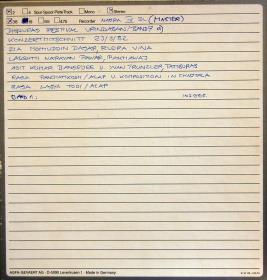 Spur Track Mono Stereo
Recorder NAGRA IV SL (MASTER)
DHRUPAD FESTIVAL VRINDABAN/BAND
KONZERTMITSCHNITT 23/3/82
ZIA MOHIUDDIN DAGAR, RUDRA VINA
LAKSHMI NARAYAN PAWAR, PAKHAWAJ
ASIT KUMAR BANERJEE U. IVAN TRUNZLER, TAMBURAS
RAGA PANCHAMKOSH/ALAP U. KOMPOSITION IN CHAUTALA
RAGA TODI/ALAP
BAND 1:
AGFA-GEVAERT AG · D-5090 Leverkusen 1 · Made in Germany